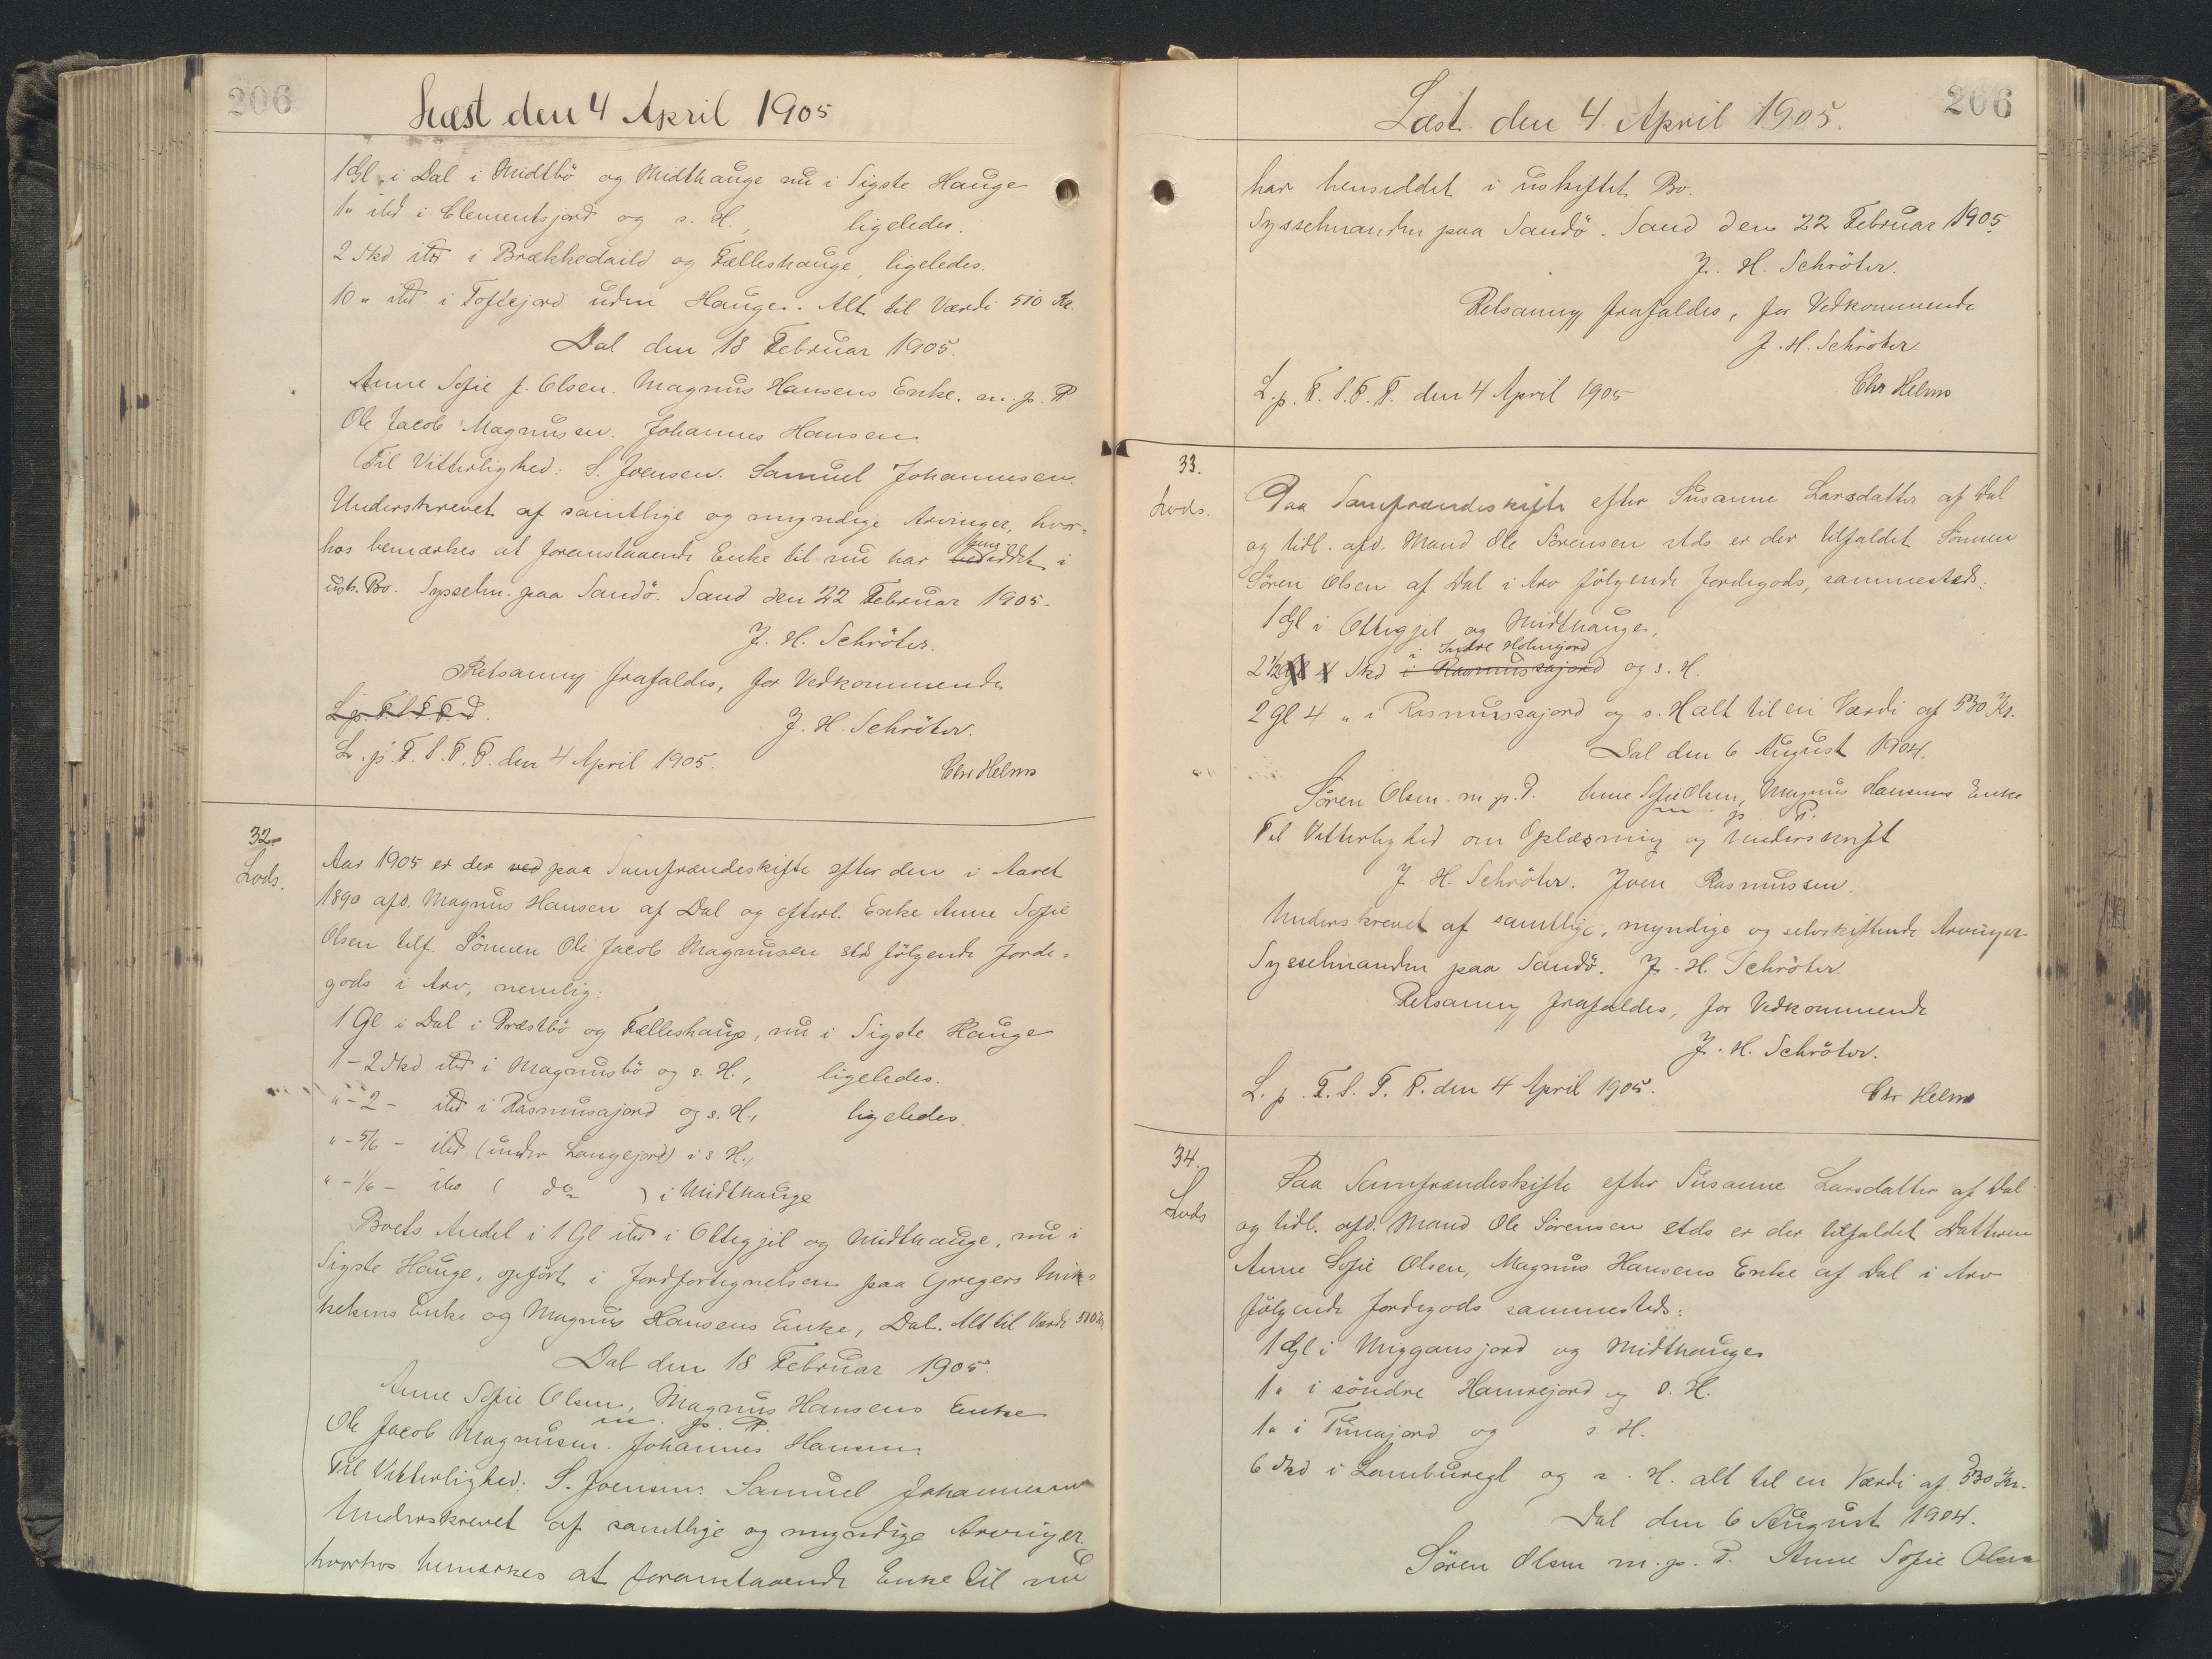 206
Læst den 4 April 1905
1 Gl i Dal i Midtbö og Midthauge nu i Sigste Hauge
1 " itd i Clementsjord og s. H., ligeledes.
2 Skd itd i Brækkedaild og Fælleshauge, ligeledes.
10 " itd i Toftejord uden Hauge. Alt til Værdi 510 Kr.
Dal den 18 Februar 1905.
Anne Sofie f. Olsen. Magnus Hansens Enke. m. p. P
Ole Jacob Magnussen. Johannes Hansen
Til Vitterlighed: S. Joensen. Samuel Johannesen.
Underskrevet af samtlige og myndige Arvinger, hvor-
hos bemærkes at foranstaaende Enke til nu har hensiddet i
usk. Bo. Sysselm. paa Sandö. Sand den 22 Februar 1905.
J. H. Schröter.
Retsanmg frafaldes, for Vedkommende
J. H. Schröter.
L. p. F. S. F. T. den 4 April 1905.
Chr Helms
32.
Lods.
Aar 1905 er der ved paa Samfrændeskifte efter den i Aaret
1890 afd. Magnus Hansen af Dal og efterl. Enke Anne Sofie
Olsen tilf. Sönnen Ole Jacob Magnussen std følgende Jorde-
gods i Arv, nemlig:
1 Gl i Dal i Præstbö og Fælleshauge, nu i Sigste Hauge
1 - 2 Skd itd i Magnusbö og s. H., ligeledes.
" - 2 - itd i Rasmusajord og s. H., ligeledes.
" - 5/6 - itd (under Langejord) i s H.,
" - 1/6 - itd ( do ) i Midthauge
Boets Andel i 1 Gl itd i Ottegjil og Midthauge, nu i
Sigste Hauge, opført i Jordfortegnelsen paa Gregers Mik-
kelsens Enke og Magnus Hansens Enke, Dal. Alt til Værdi 510 Kr.
Dal den 18 Februar 1905.
Anne Sofie Olsen, Magnus Hansens Enke
m. p. P.
Ole Jacob Magnussen. Johannes Hansen.
Til Vitterlighed: S. Joensen. Samuel Johannesen
Underskrevet af samtlige og myndige Arvinger.
hvorhos bemærkes at foranstaaende Enke til nu
206
Læst den 4 April 1905.
har hensiddet i uskiftet Bo.
Sysselmanden paa Sandö. Sand den 22 Februar 1905
J. H. Schröter.
Retsanmg frafaldes, for Vedkommende
J. H. Schröter.
L. p. F. S. F. T. den 4 April 1905
Chr Helms
33.
Lods.
Paa Samfrændeskifte efter Susanne Larsdatter af Dal
og tidl. afd. Mand Ole Sörensen stds er der tilfaldet Sönnen
Sören Olsen af Dal i Arv fölgende Jordegods, sammesteds:
1 Gl i Ottegjil og Midthauge,
i Indre Holmjord
2 1/2 Skd i Rasmussajord og s. H.
2 Gl 4 " i Rasmussajord og s. H alt til en Værdi af 530 Kr.
Dal den 6 August 1904.
Sören Olsen m. p. P. Anne Sofie Olsen, Magnus Hansens Enke
m p P.
Til Vitterlighed om Oplæsning og Underskrift
J H. Schröter. Joen Rasmussen.
Underskrevet af samtlige, myndige og selvskiftende Arvinger
Sysselmanden paa Sandö. J. H. Schröter.
Retsanmg frafaldes, for Vedkommende
J. H. Schröter.
L. p. F. S. F. T. den 4 April 1905.
Chr Helms
34.
Lods
Paa Samfrændeskifte efter Susanne Larsdatter af Dal
og tidl. afd. Mand Ole Sörensen stds er der tilfaldet Datteren
Anne Sofie Olsen, Magnus Hansens Enke af Dal i Arv
fölgende Jordegods sammesteds:
1 Gl i Miggansjord og Midthauge
1 " i söndre Hamrejord og s. H.
1 " i Tunajord og s. H.
6 Skd i Lamburegl og s. H. alt til en Værdi af 530 Kr.
Dal den 6 August 1904.
Sören Olsen m. p. P. Anne Sofie Olsen